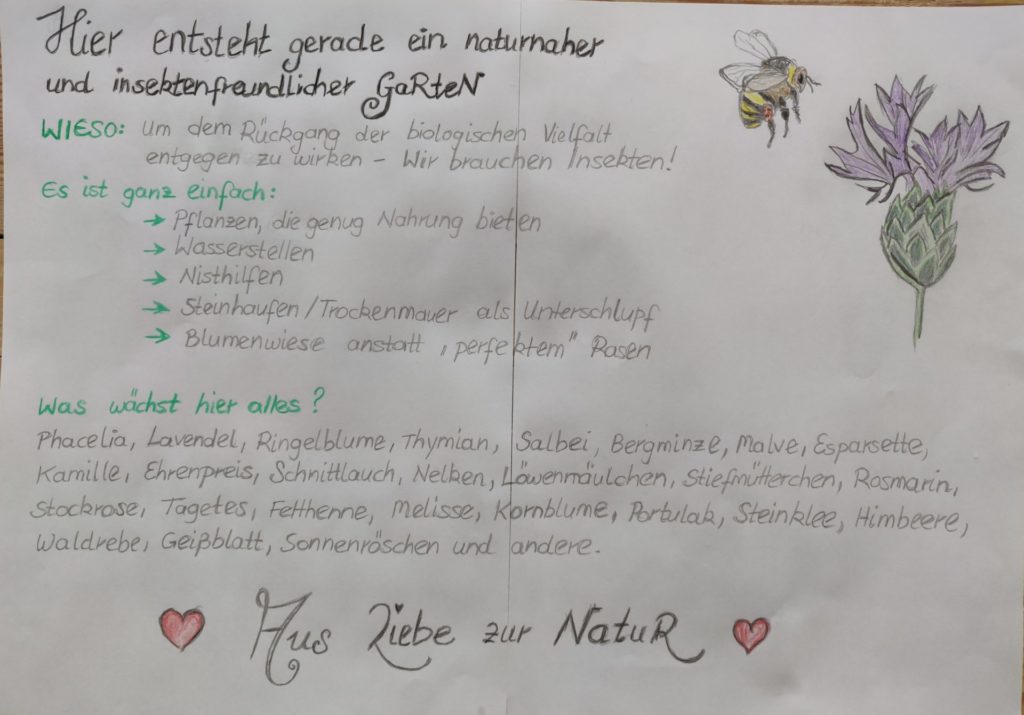 Hier entsteht gerade ein naturnaher
und insektenfreundlicher GaRteN
WIESO: Um dem Rückgang der biologischen Vielfalt
entgegen zu wirken – Wir brauchen Insekten!
Es ist ganz einfach:
→ Pflanzen, die genug Nahrung bieten
→ Wasserstellen
→ Nisthilfen
→ Steinhaufen/Trockenmauer als Unterschlupf
→ Blumenwiese anstatt „perfektem" Rasen
Was wächst hier alles?
Phacelia, Lavendel, Ringelblume, Thymian, Salbei, Bergminze, Malve, Esparsette,
Kamille, Ehrenpreis, Schnittlauch, Nelken, Löwenmäulchen, Stiefmütterchen, Rosmarin,
Stockrose, Tagetes, Fetthenne, Melisse, Kornblume, Portulak, Steinklee, Himbeere,
Waldrebe, Geißblatt, Sonnenröschen und andere.
Aus Liebe zur NatuR